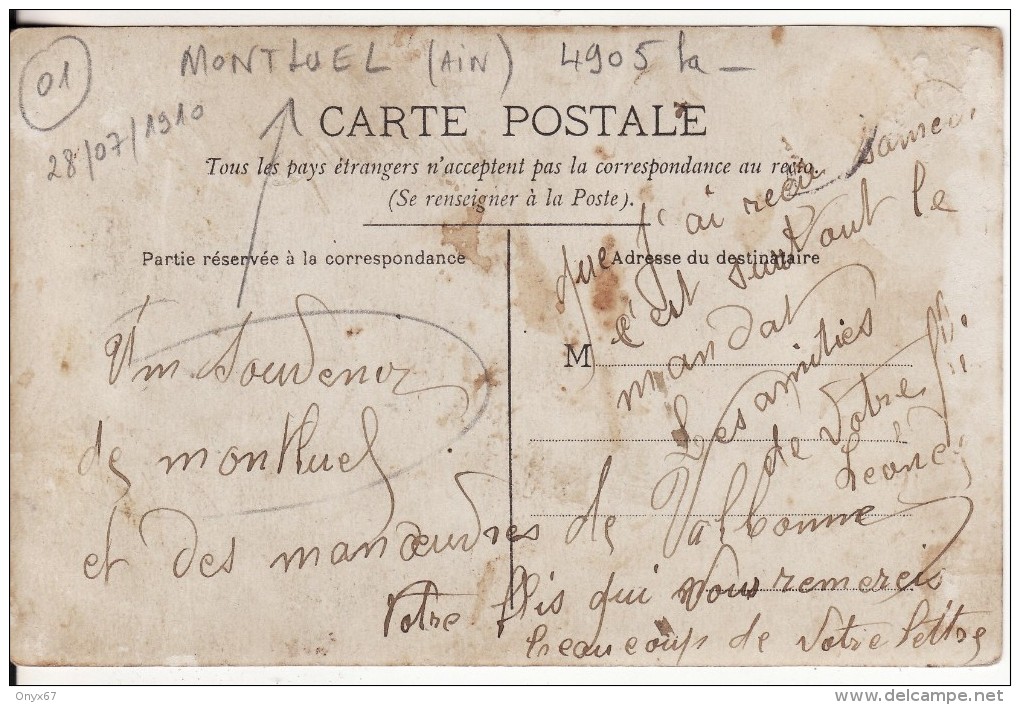 01
MONTLUEL (AIN) 4905 la_
28/07/1910
CARTE POSTALE
Tous les pays étrangers n'acceptent pas la correspondance au recto.
(Se renseigner à la Poste).
Partie réservée à la correspondance
Adresse du destinataire
M
Un Souvenir
de monthuel
et des manœuvres de Valbonne
Votre fils qui vous remercis
beaucoup de votre lettre
que j'ai reçu samedi
c'est surtout le
mandat
Les amitiés
de votre fils
Léonce
Onyx67
www.delcampe.net